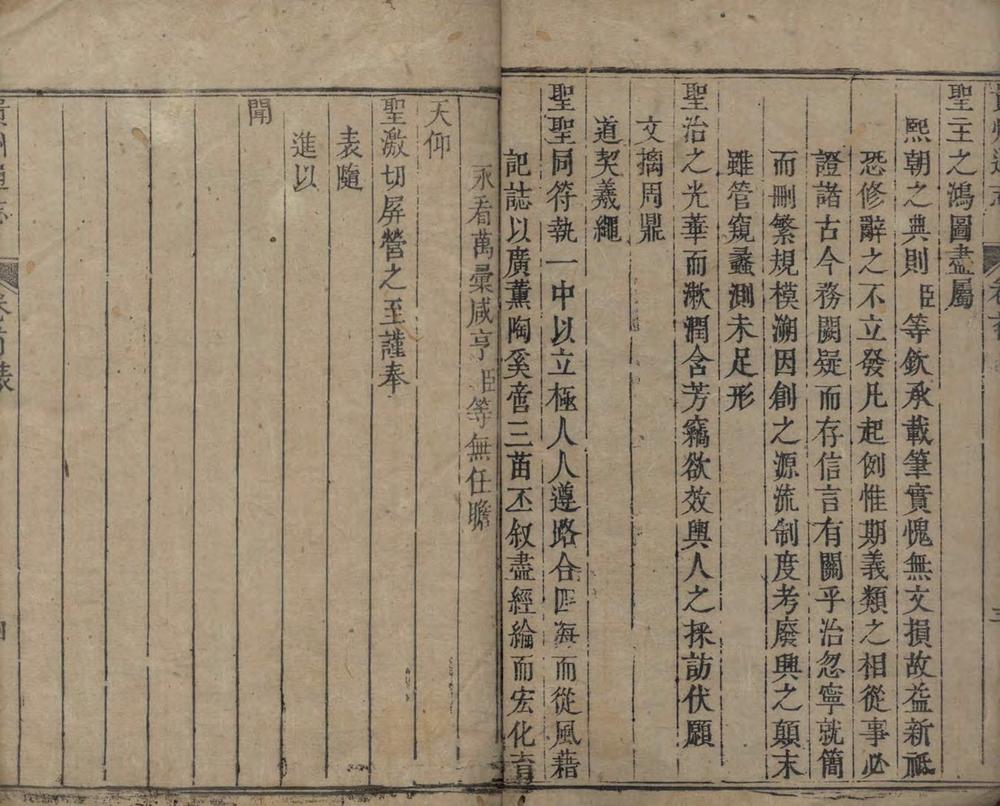 聖王之鴻圖盡屬
熙朝之典則臣等欽承載筆實愧無文損故益新祗
恐修辭之不立發凡起例惟期義類之相從事必
證諸古今務闕疑而存信言有關乎治忽寧就簡
而刪繁規模溯因創之源流制度考廢興之顛末
雖管窺蠡測未足形
聖治之光華而漱潤含芳竊欲效輿人之採訪伏願
文摛周鼎
道契羲繩
聖聖同符執一中以立極人人遵路合四海而從風藉
記誌以廣薰陶奚啻三苗丕叙盡經綸而宏化育
永看萬彙咸亨臣等無任瞻
天仰
聖激切屏營之至謹奉
表隨
進以
聞
通志
卷首表
四